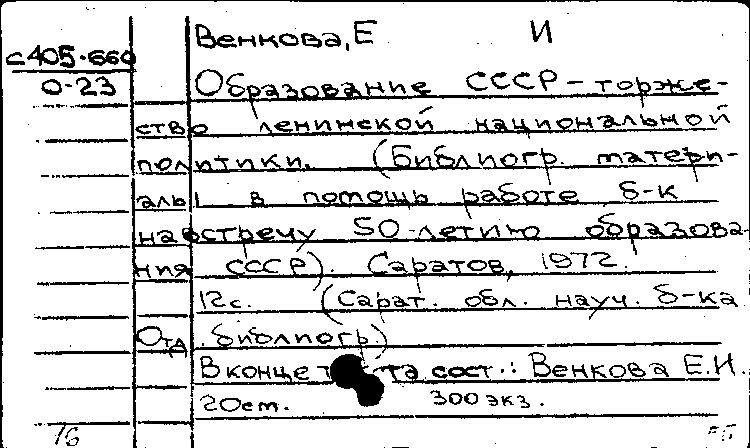 Венкова, Е И
с405.660
О-23
Образование СССР - торже-
ство ленинской национальной
политики. (Библиогр. матери-
алы в помощь работе б-к
навстречу 50-летию образова-
ния СССР). Саратов, 1972.
12с. (Сарат. обл. науч. б-ка
Отд библиогр)
В конце та сост.: Венкова Е.И.
20см. 300 экз.
16